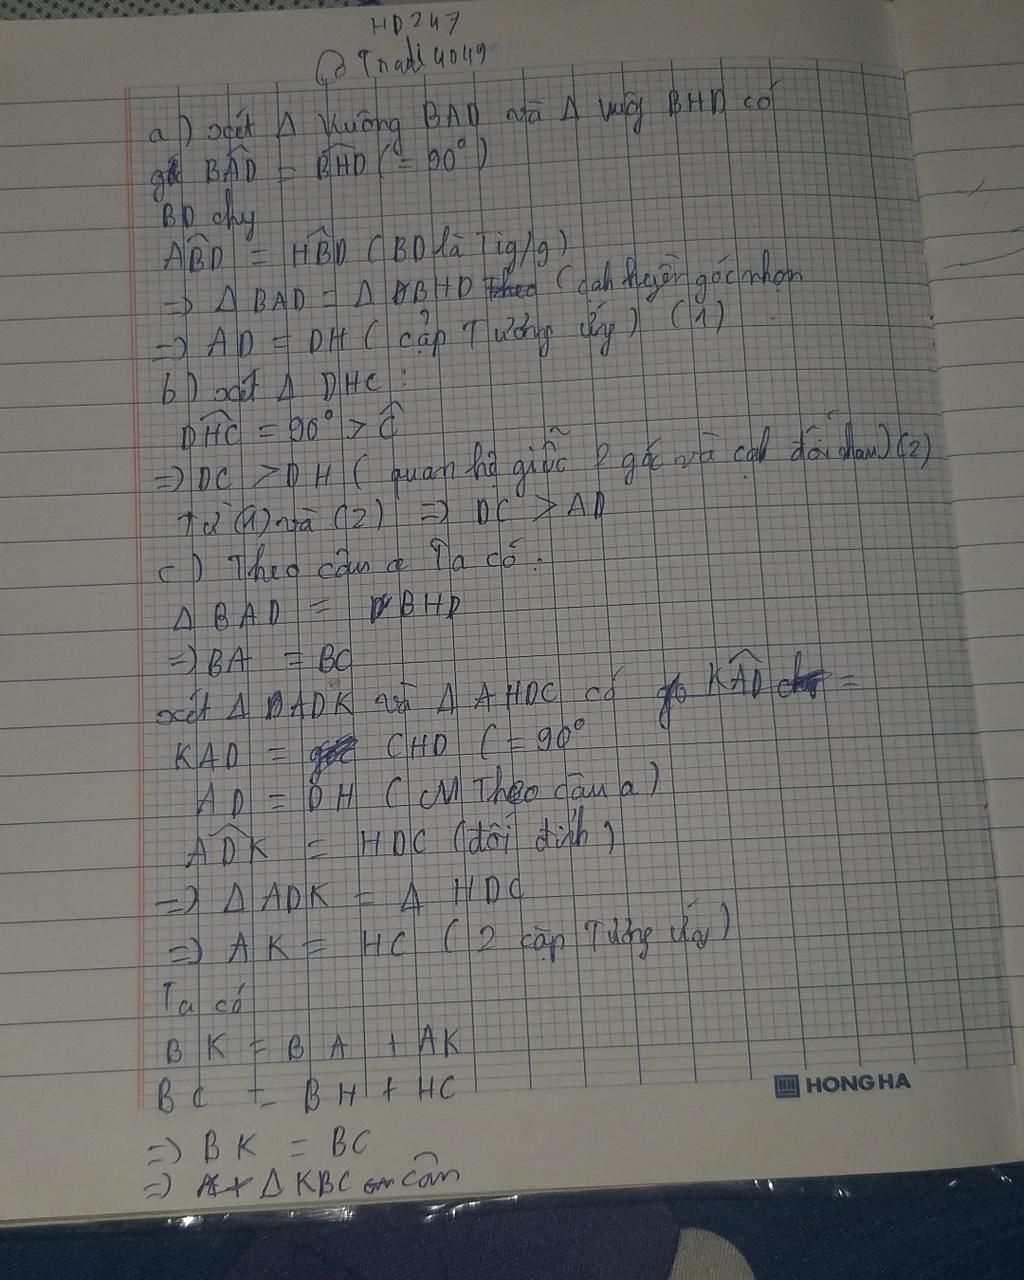 HD247
@Tnadi4049
a) xét Δ Vuông BAD và Δ vuôg BHD có
BAD = BHD (= 90°)
BD chug
ABD = HBD (BD là Tig/g)
=> Δ BAD = Δ BHD (cah huyền góc nhọn
=> AD = DH ( cặp Tương ứng) (1)
b) xét Δ DHC :
DHC = 90° > C
=> DC > DH ( quan hệ giữa 2 góc và cạh đối diện) (2)
Từ (1) và (2) => DC > AD
c) Theo câu a Ta có :
Δ BAD = BHD
=> BA = BC
xét Δ ADK và Δ HDC có KAD =
KAD = CHD (= 90°
AD = DH ( CM Theo câu a)
ADK = HDC (đối đỉnh)
=> Δ ADK = Δ HDC
=> AK = HC ( 2 cặp Tương ứng)
Ta có
BK = BA + AK
BC = BH + HC
=> BK = BC
=> Δ KBC cân
HONG HA